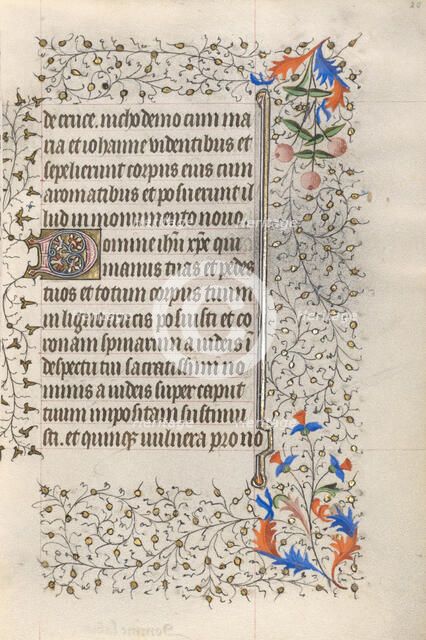 20
de cruce. nichodemo cum ma
ria et iohanne videntibus et
sepelierunt corpus eius cum
aromatibus et posuerunt il
lud in monumento nouo
Domine ihu xpe qui
manus tuas et pedes
tuos et totum corpus tuum
in ligno crucis posuisti et co
ronam spinarum a iudeis i
despectu tui sacratissimi no
minis a iudeis super caput
tuum impositam sustinui
sti. et quinque uulnera pro no